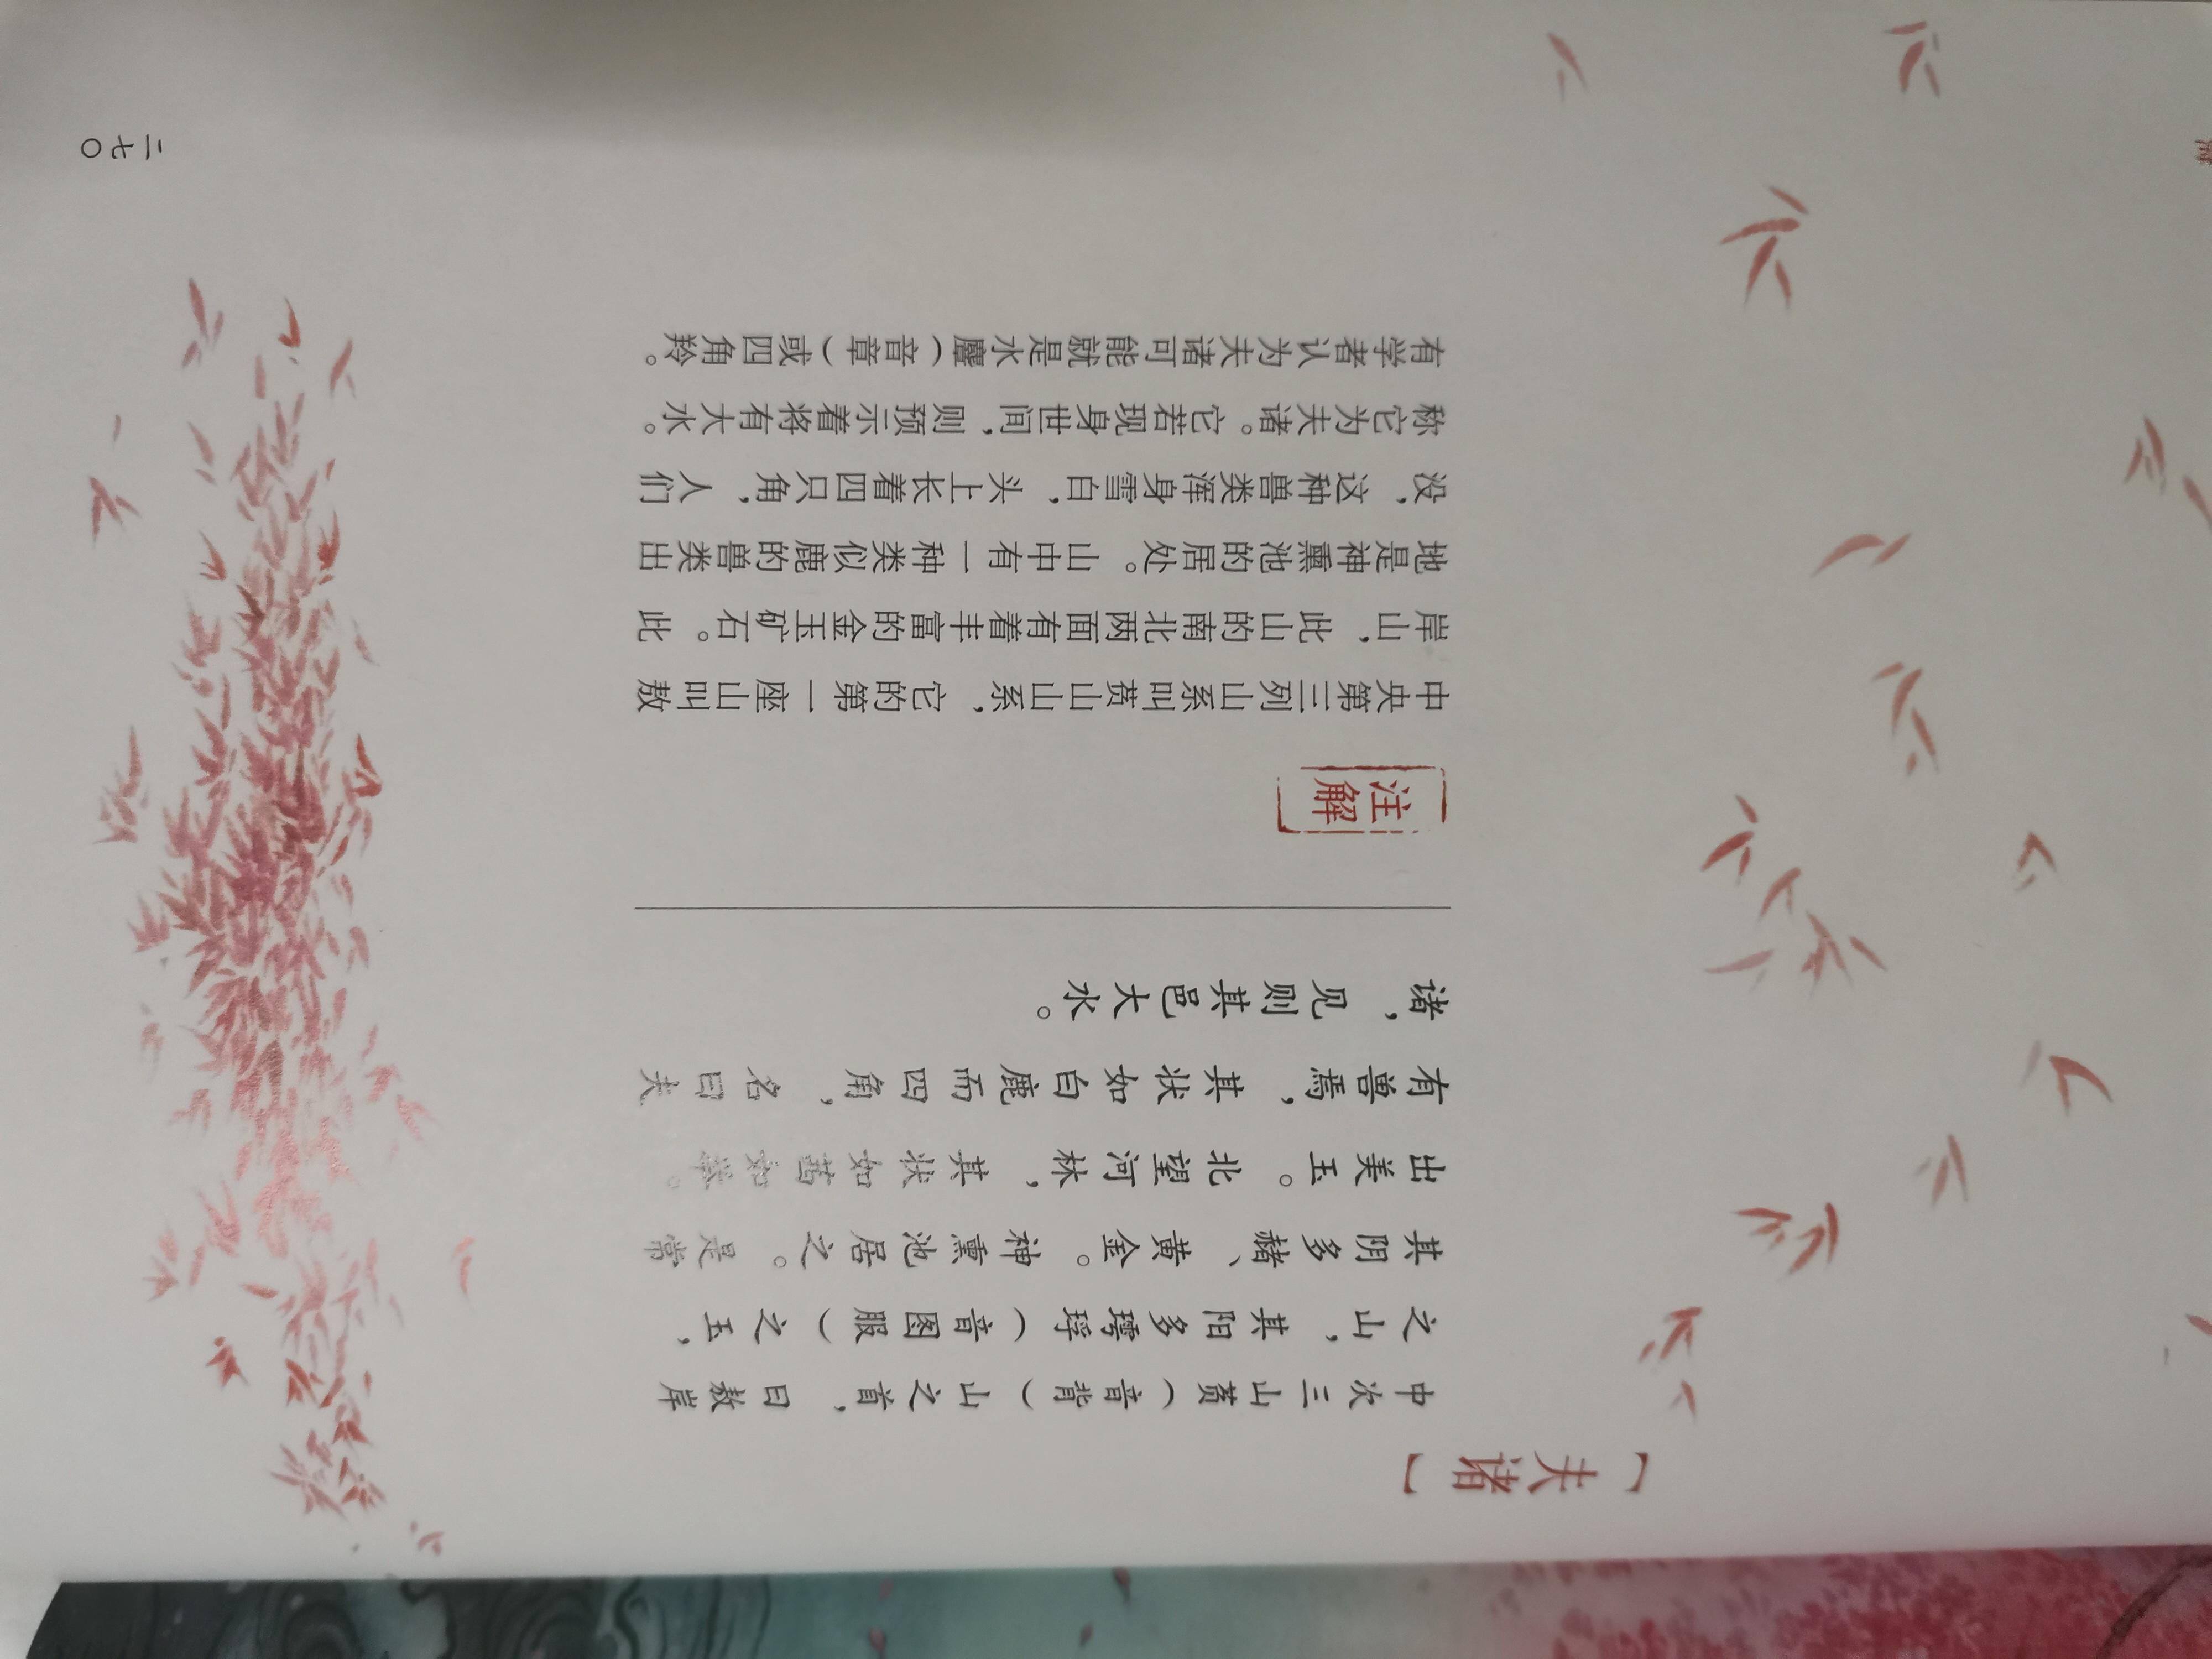 【夫诸】
中次三山萯（音背）山之首，曰敖岸
之山，其阳多㻬琈（音图服）之玉，
其阴多赭、黄金。神熏池居之。是常
出美玉。北望河林，其状如茜如举。
有兽焉，其状如白鹿而四角，名曰夫
诸，见则其邑大水。
注解
中央第三列山系叫萯山山系，它的第一座山叫敖
岸山，此山的南北两面有着丰富的金玉矿石。此
地是神熏池的居处。山中有一种类似鹿的兽类出
没，这种兽类浑身雪白，头上长着四只角，人们
称它为夫诸。它若现身世间，则预示着将有大水。
有学者认为夫诸可能就是水麞（音章）或四角羚。
二七〇